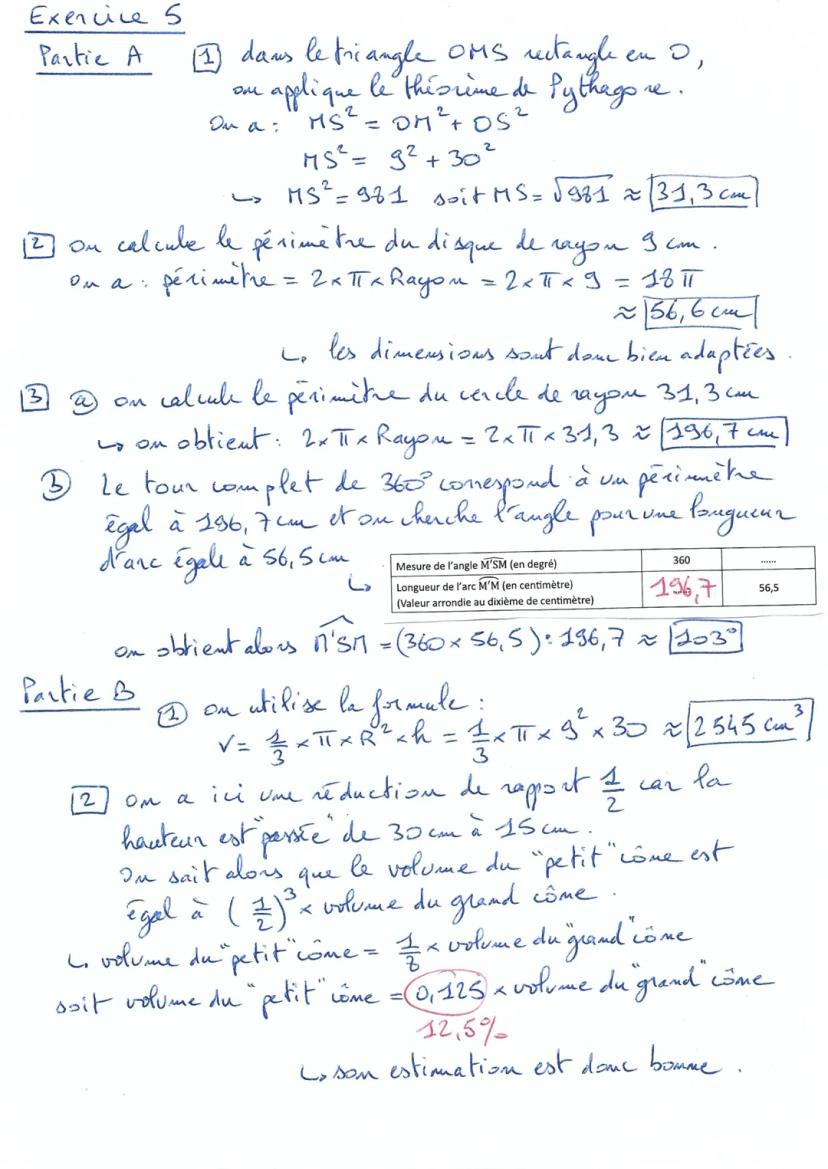 Exercice 5
Partie A 1 dans le triangle OMS rectangle en O,
on applique le théorème de Pythagore.
On a : MS² = OM² + OS²
MS² = 9² + 30²
↳ MS² = 981 soit MS = √981 ≈ 31,3 cm
2 on calcule le périmètre du disque de rayon 9 cm.
On a : périmètre = 2 × π × Rayon = 2 × π × 9 = 18 π
≈ 56,6 cm
↳ les dimensions sont donc bien adaptées.
3 a on calcule le périmètre du cercle de rayon 31,3 cm
↳ on obtient : 2 × π × Rayon = 2 × π × 31,3 ≈ 196,7 cm
b Le tour complet de 360° correspond à un périmètre
égal à 196,7 cm et on cherche l'angle pour une longueur
d'arc égale à 56,5 cm
↳
Mesure de l'angle M'SM (en degré) 360 ......
Longueur de l'arc M'M (en centimètre) 196,7 56,5
(Valeur arrondie au dixième de centimètre)
on obtient alors M'SM = (360 × 56,5) : 196,7 ≈ 103°
Partie B 1 on utilise la formule :
V = 1/3 × π × R² × h = 1/3 × π × 9² × 30 ≈ 2545 cm³
2 on a ici une réduction de rapport 1/2 car la
hauteur est "passée" de 30 cm à 15 cm.
On sait alors que le volume du "petit" cône est
égal à (1/2)³ × volume du grand cône.
↳ volume du "petit" cône = 1/8 × volume du "grand" cône
soit volume du "petit" cône = 0,125 × volume du "grand" cône
12,5%
↳ son estimation est donc bonne.